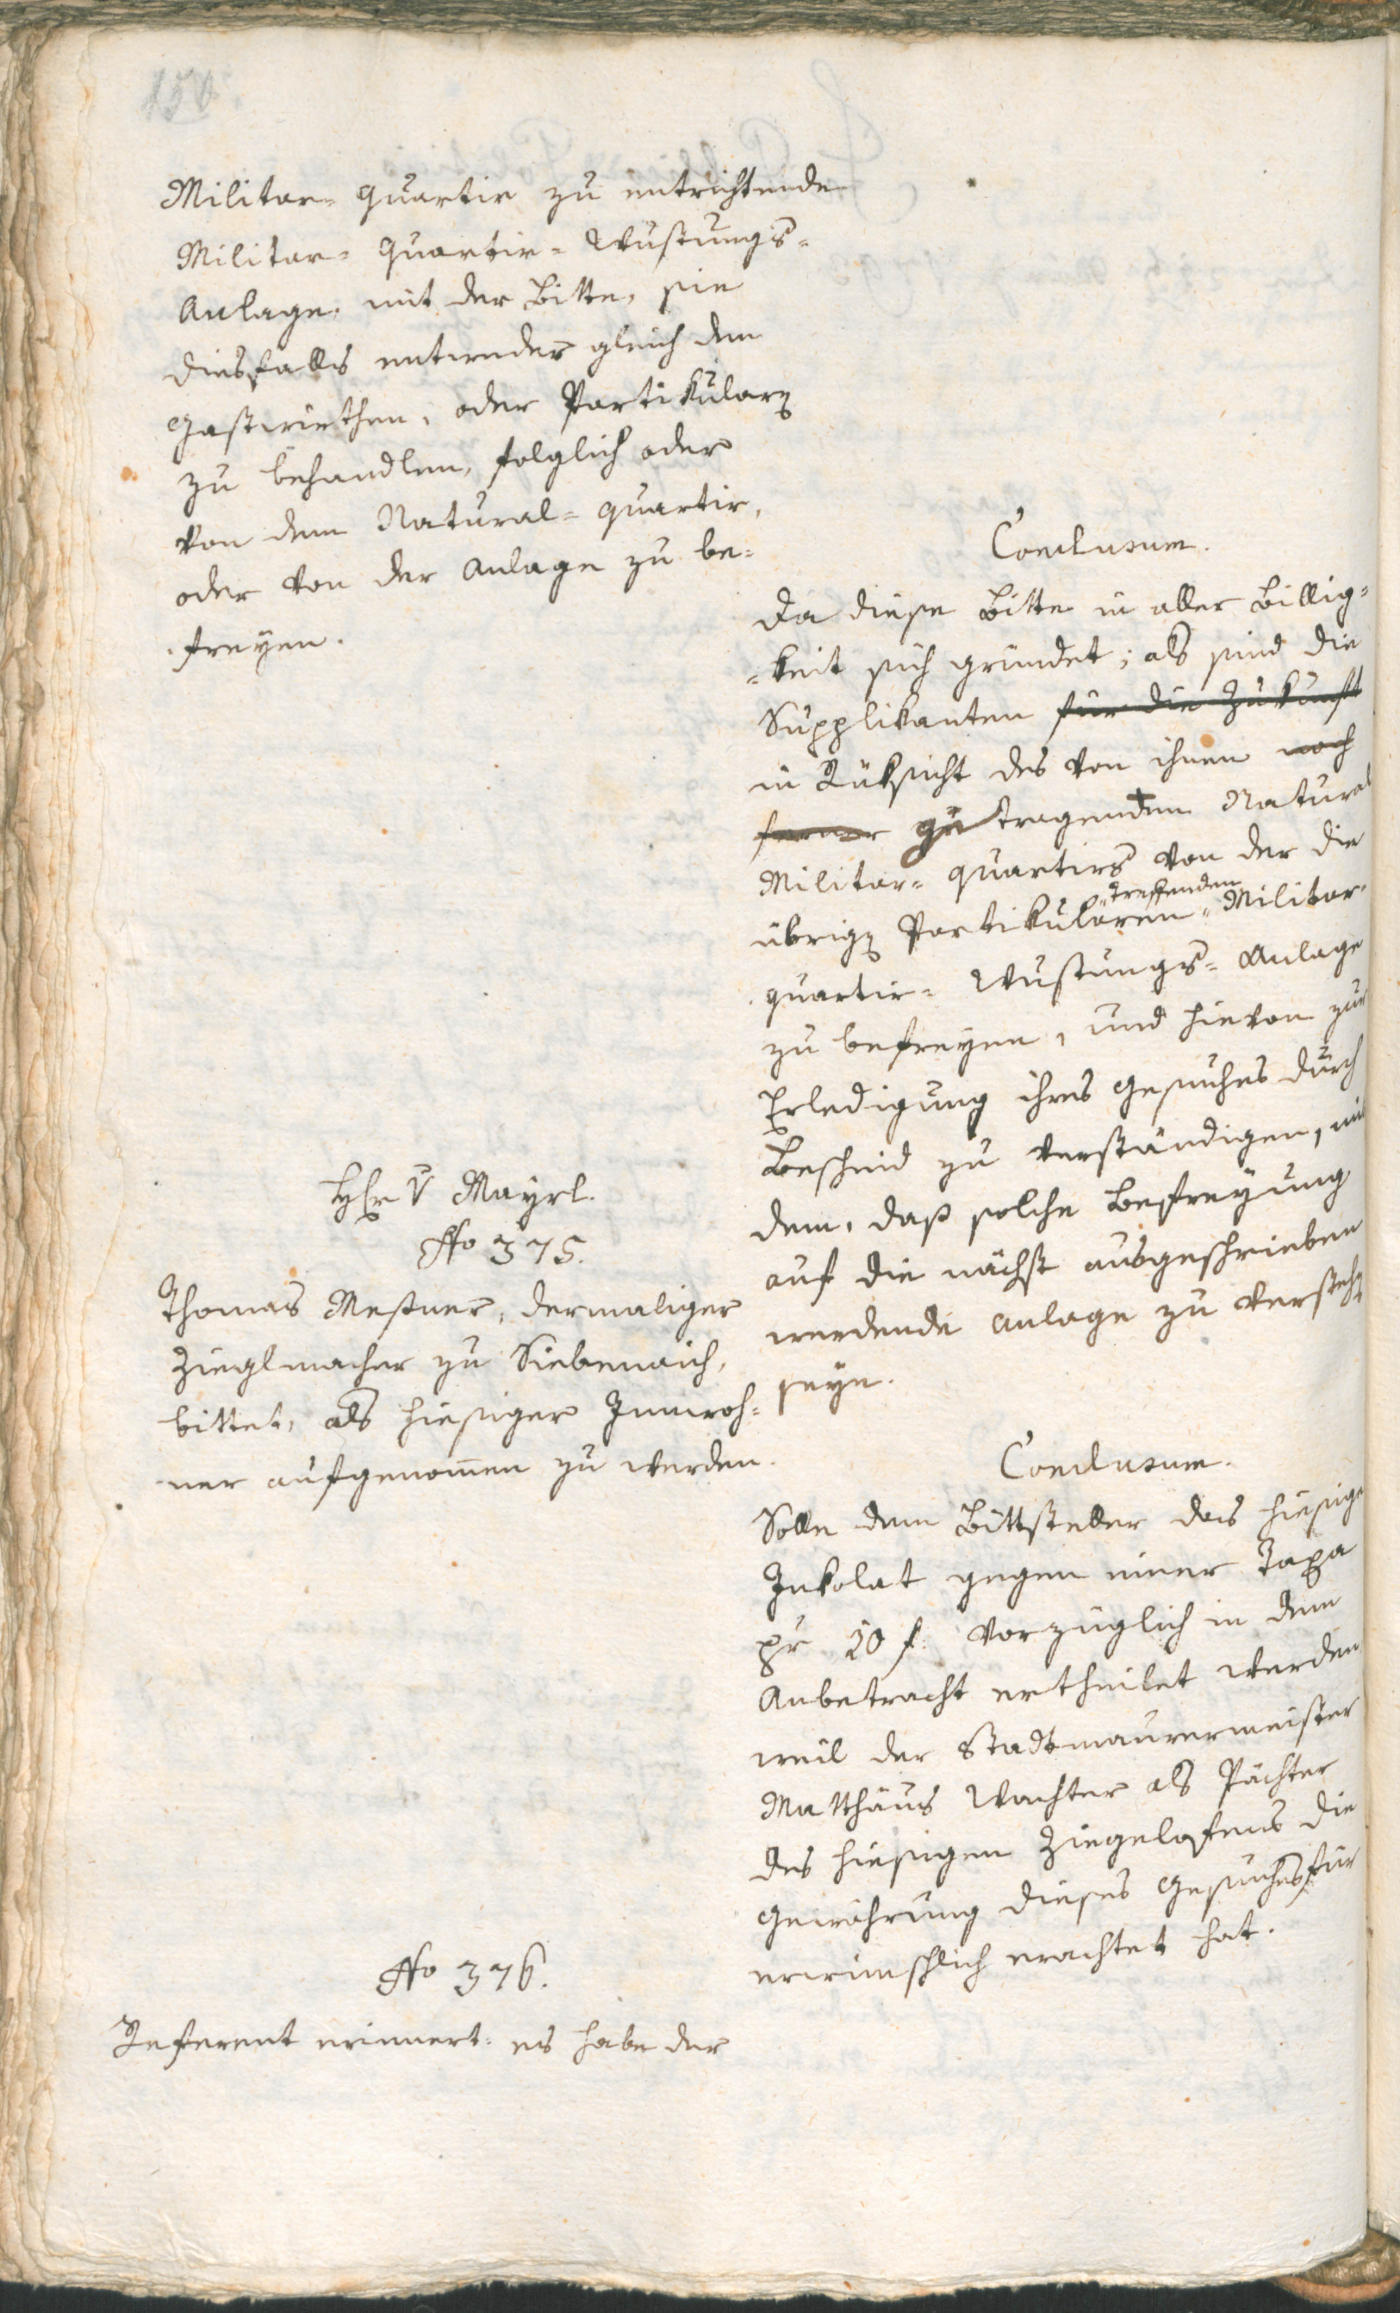 150
Militar- Quartir zu entrichtende
Militar- Quartir- Wustungs-
Anlage, mit der Bitte, sie
diesfalls entweder gleich den
Gastwirthen, oder Partikularn
zu behandlen, folglich oder
von dem Natural- quartir,
oder von der Anlage zu be-
freyen.
Conclusum.
Da diese Bitte in aller Billig-
-keit sich gründet; als sind die
Supplikanten für die Zukunft
in Rüksicht des von ihnen noch
ferner zu tragenden Natural
Militar- quartirs von der die
übrign Partikularen treffenden Militar-
quartir- Wustungs- Anlage
zu befreyen, und hievon zur
Erledigung ihres Gesuches durch
Bescheid zu verständigen, mit
dem, daß solche Befreyung
auf die nächst ausgeschrieben
werdende Anlage zu verstehn
seye.
Hr v Mayrl.
No 375.
Thomas Meßner, dermaliger
Zieglmacher zu Siebenaich,
bittet, als hiesiger Innwoh-
ner aufgenommen zu werden.
Conclusum.
Solle dem Bittsteller das hiesige
Inkolat gegen einer Taxa
pr 20 f. vorzüglich in dem
Anbetracht ertheilet werden
weil der Stadtmaurermeister
Matthäus Wachter als Pächter
des hiesigen Ziegelofens die
Gewährung dieses Gesuches für
erwünschlich erachtet hat.
No 376.
Referent erinnert: es habe der